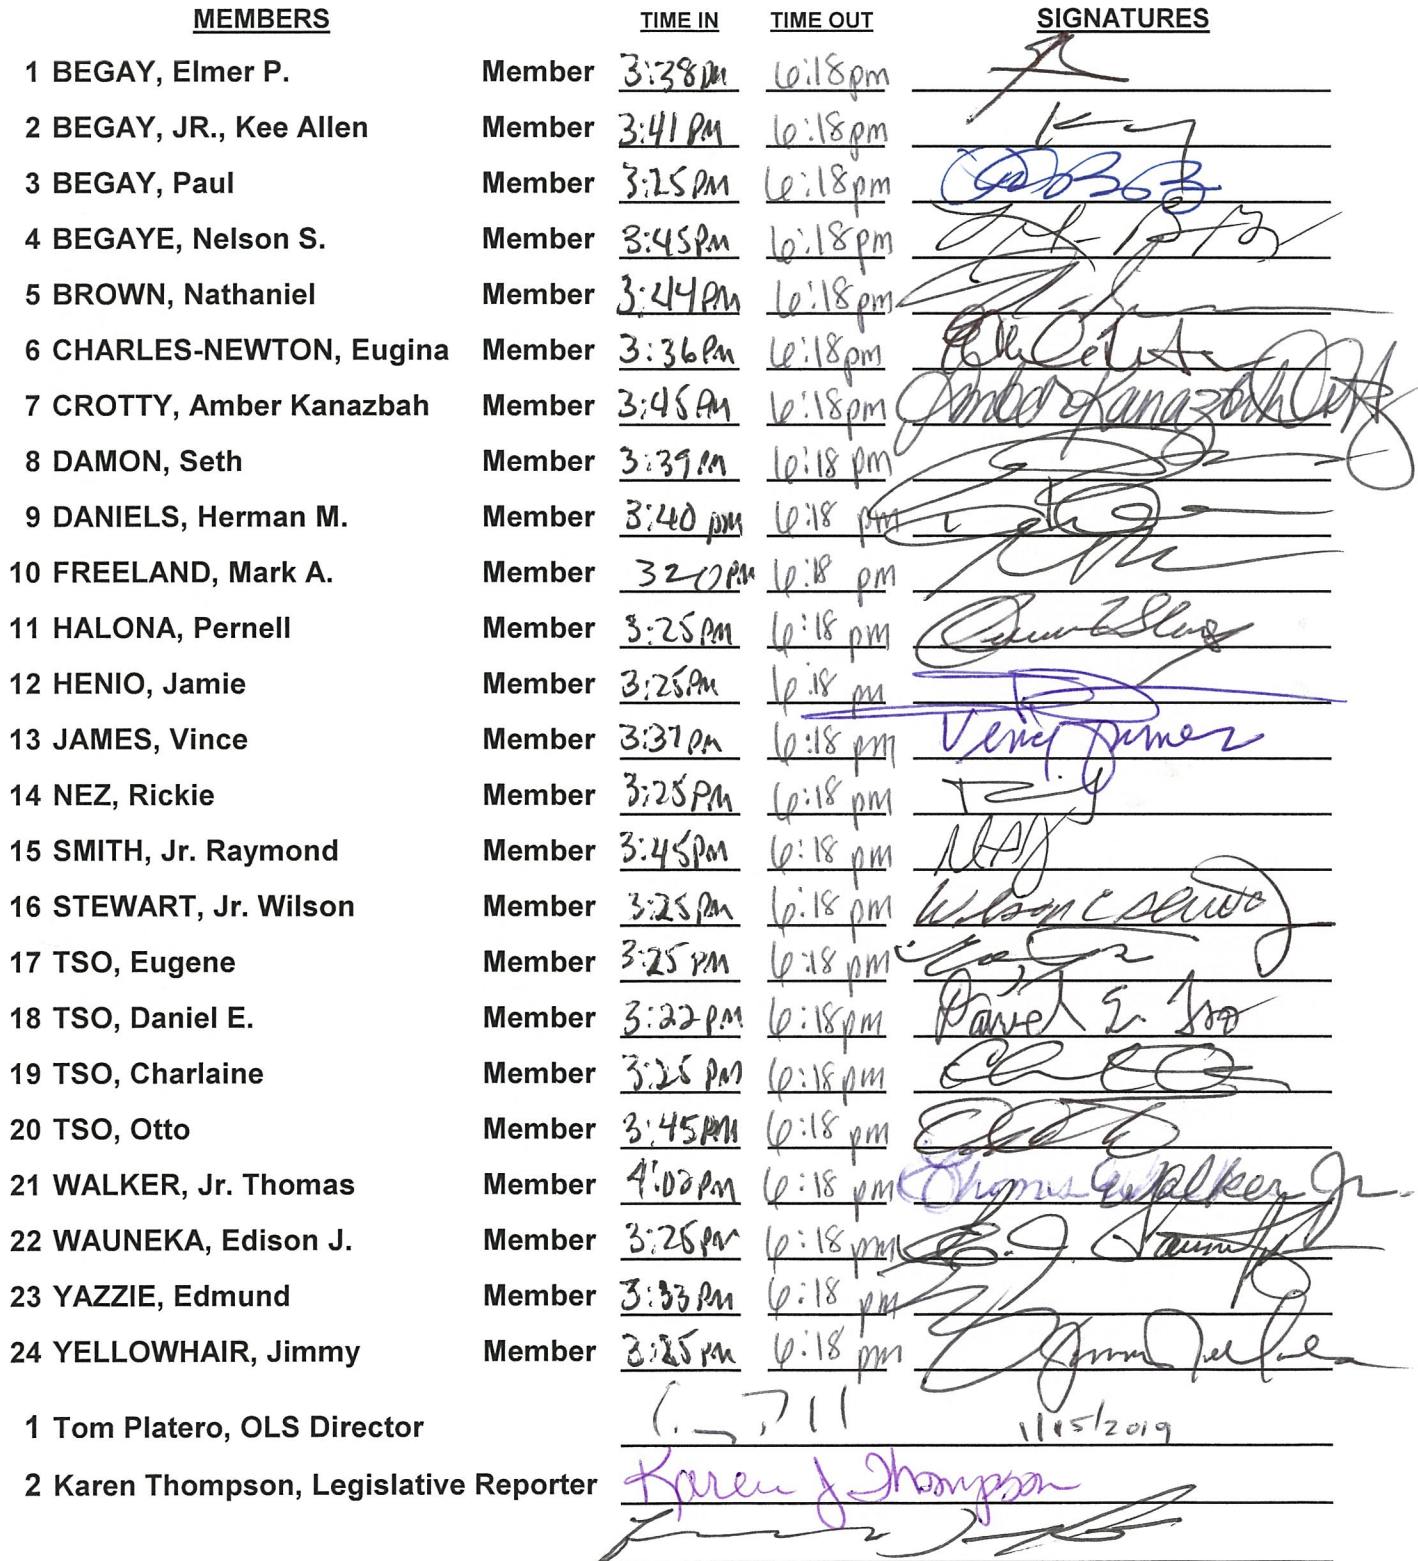 MEMBERS TIME IN TIME OUT SIGNATURES
1 BEGAY, Elmer P. Member 3:38pm 6:18pm
2 BEGAY, JR., Kee Allen Member 3:41 PM 6:18pm
3 BEGAY, Paul Member 3:25PM 6:18pm
4 BEGAYE, Nelson S. Member 3:45PM 6:18pm
5 BROWN, Nathaniel Member 3:44PM 6:18pm
6 CHARLES-NEWTON, Eugina Member 3:36PM 6:18pm
7 CROTTY, Amber Kanazbah Member 3:45PM 6:18pm Amber Kanazbah Crotty
8 DAMON, Seth Member 3:39PM 6:18 pm
9 DANIELS, Herman M. Member 3:40 pm 6:18 pm
10 FREELAND, Mark A. Member 320PM 6:18 pm
11 HALONA, Pernell Member 3:25PM 6:18 pm
12 HENIO, Jamie Member 3:25PM 6:18 pm
13 JAMES, Vince Member 3:37PM 6:18 pm Vince James
14 NEZ, Rickie Member 3:25PM 6:18 pm
15 SMITH, Jr. Raymond Member 3:45PM 6:18 pm
16 STEWART, Jr. Wilson Member 3:25PM 6:18 pm Wilson C Stewart
17 TSO, Eugene Member 3:25 PM 6:18 pm
18 TSO, Daniel E. Member 3:22PM 6:18pm Daniel E. Tso
19 TSO, Charlaine Member 3:25 PM 6:18pm
20 TSO, Otto Member 3:45PM 6:18 pm
21 WALKER, Jr. Thomas Member 4:02PM 6:18 pm Thomas Walker Jr.
22 WAUNEKA, Edison J. Member 6:18 pm
23 YAZZIE, Edmund Member 3:33PM 6:18 pm
24 YELLOWHAIR, Jimmy Member 6:18 pm
1 Tom Platero, OLS Director 1/15/2019
2 Karen Thompson, Legislative Reporter Karen J Thompson